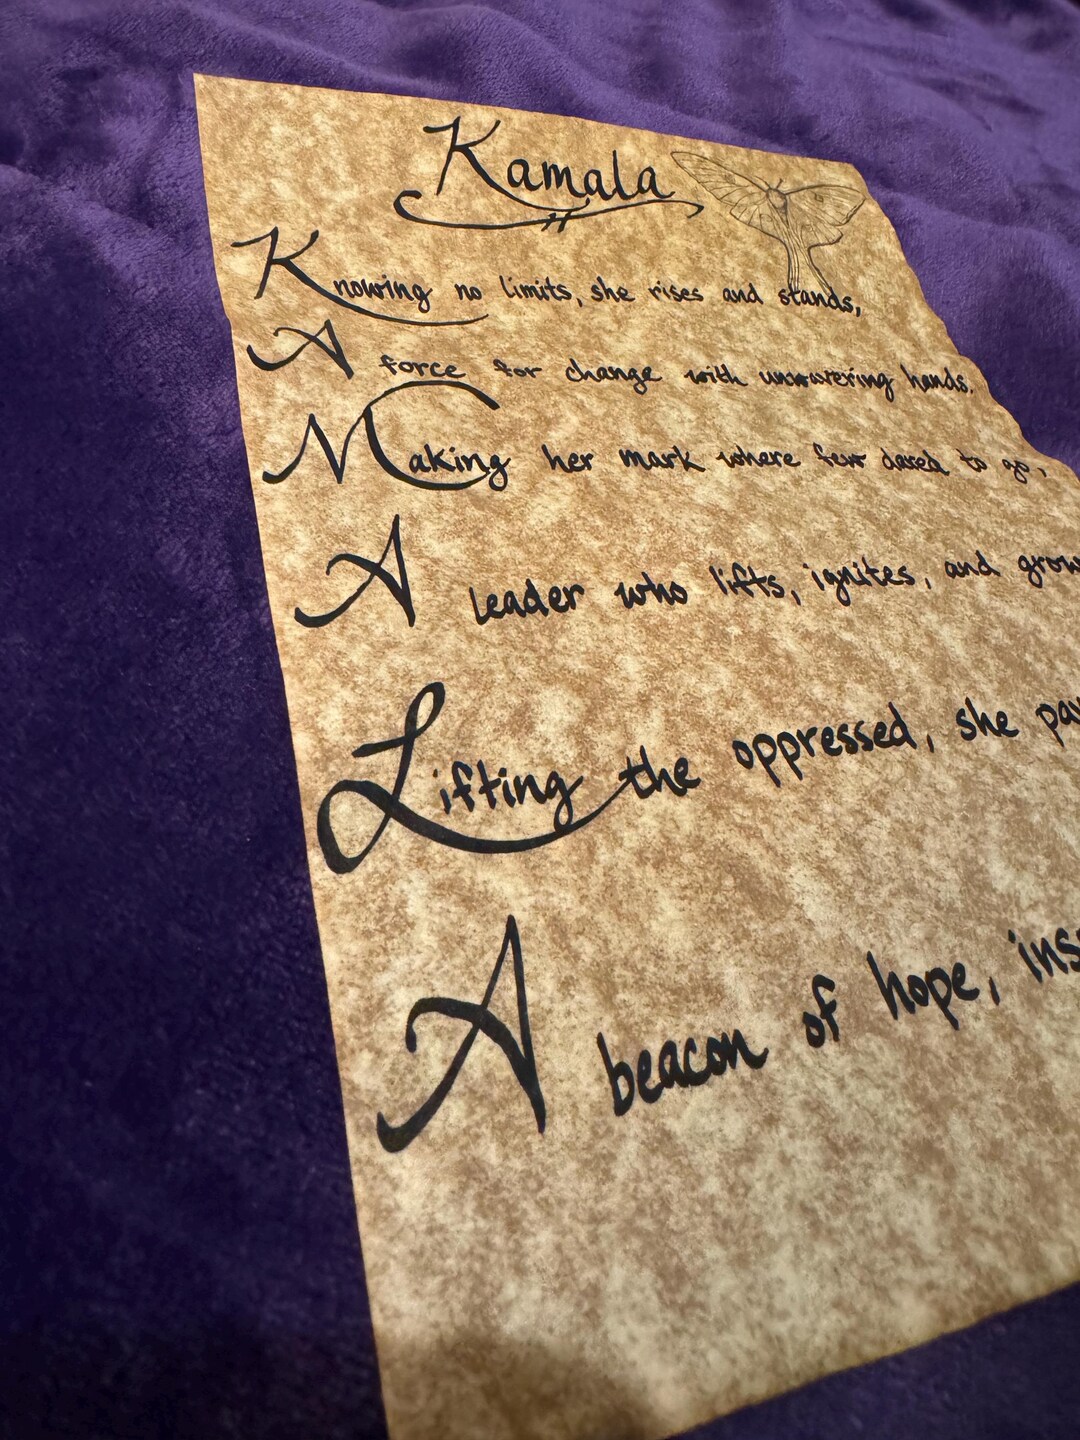 Kamala
Knowing no limits, she rises and stands,
A force for change with unwavering hands.
Making her mark where few dared to go,
A leader who lifts, ignites, and
Lifting the oppressed, she
A beacon of hope,